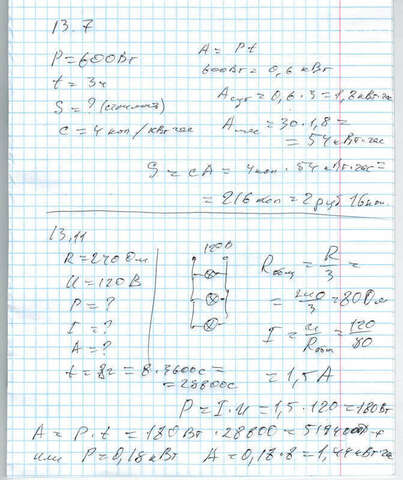 13.7
P = 600Вт
t = 3ч
S = ? (стоимость)
c = 4 коп/кВт·час
A = Pt
600Вт = 0,6 кВт
Aсут = 0,6 · 3 = 1,8 кВт·час
Aмес = 30 · 1,8 =
= 54 кВт·час
S = cA = 4коп · 54 кВт·час =
= 216 коп = 2 руб 16 коп.
13.11
R = 240 Ом
U = 120 В
P = ?
I = ?
A = ?
t = 8ч = 8 · 3600с =
= 28800с
120В
Rобщ = R/3 =
= 240/3 = 80 Ом
I = U/Rобщ = 120/80
= 1,5 А
P = I · U = 1,5 · 120 = 180Вт
A = P · t = 180 Вт · 28800 =
или P = 0,18 кВт A = 0,18 · 8 = 1,44 кВт·час